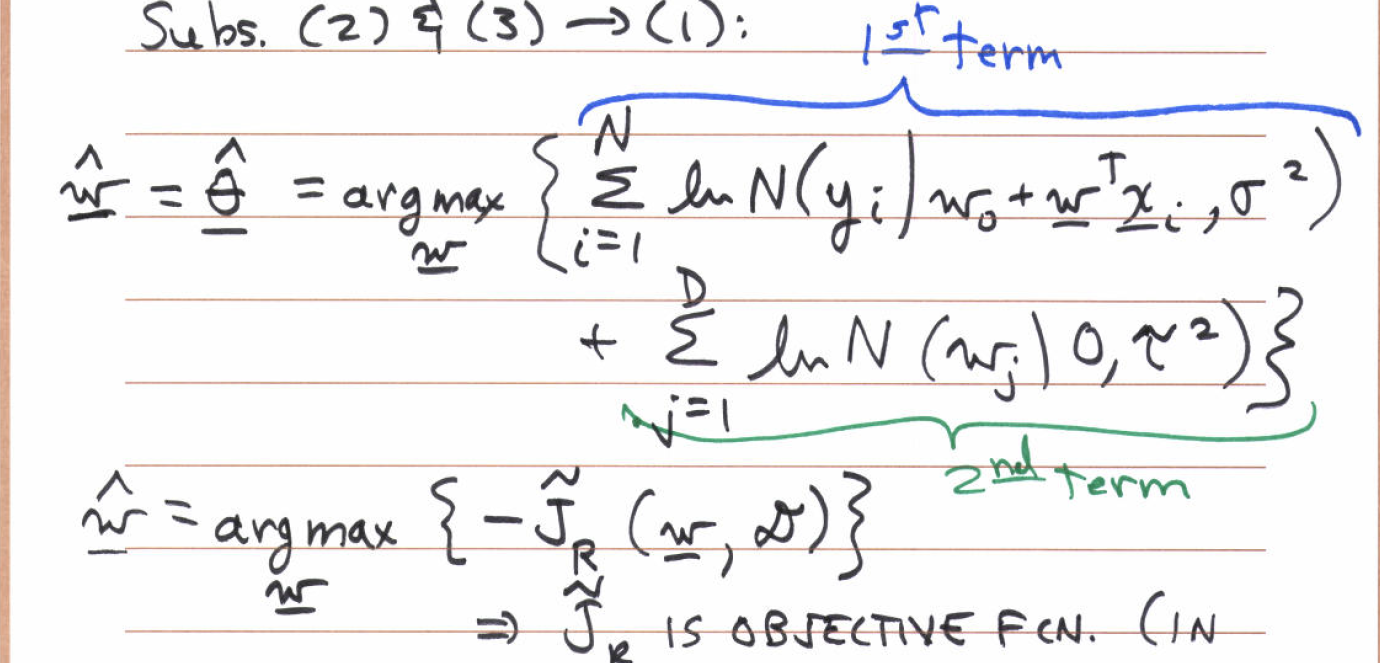 Subs. (2) & (3) → (1):
1st term
ŵ = θ̂ = argmax_w { Σ_{i=1}^{N} ln N(y_i | w_0 + w^T x_i, σ²)
+ Σ_{j=1}^{D} ln N(w_j | 0, τ²) }
2nd term
ŵ = argmax_w { -J̃_R (w, 𝒟) }
⇒ J̃_R IS OBJECTIVE FCN. (IN